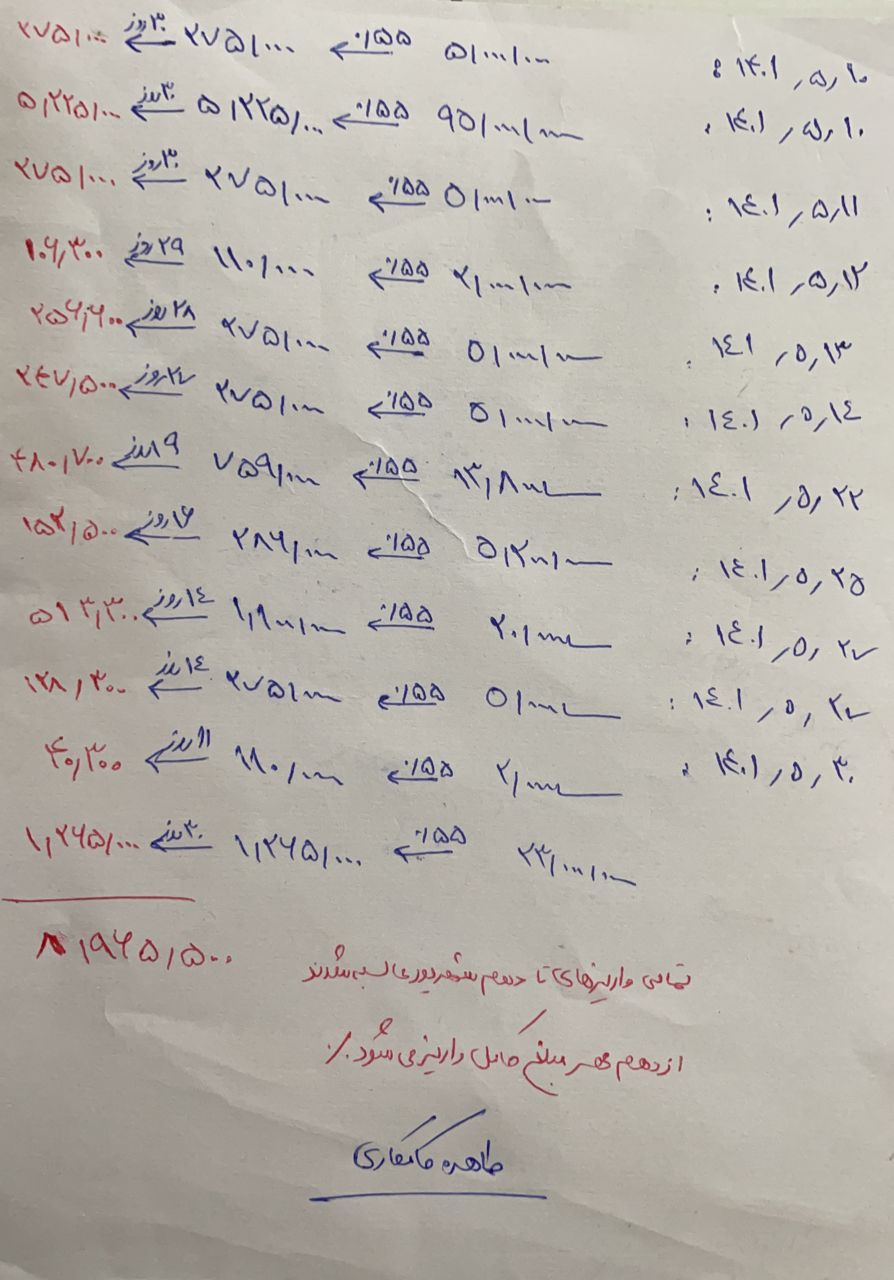 ۱۴۰۱٫۵٫۱۰ : ۵٬۰۰۰٬۰۰۰ ← ٪۵٫۵ ۲۷۵٬۰۰۰ ← ۳۰ روز ۲۷۵٬۰۰۰
۱۴۰۱٫۵٫۱۰ : ۹۵٬۰۰۰٬۰۰۰ ← ٪۵٫۵ ۵٬۲۲۵٬۰۰۰ ← ۳۰ روز ۵٬۲۲۵٬۰۰۰
۱۴۰۱٫۵٫۱۱ : ۵٬۰۰۰٬۰۰۰ ← ٪۵٫۵ ۲۷۵٬۰۰۰ ← ۳۰ روز ۲۷۵٬۰۰۰
۱۴۰۱٫۵٫۱۲ : ۲٬۰۰۰٬۰۰۰ ← ٪۵٫۵ ۱۱۰٬۰۰۰ ← ۲۹ روز ۱۰۶٬۳۰۰
۱۴۰۱٫۵٫۱۳ : ۵٬۰۰۰٬۰۰۰ ← ٪۵٫۵ ۲۷۵٬۰۰۰ ← ۲۸ روز ۲۵۶٬۶۰۰
۱۴۰۱٫۵٫۱۴ : ۵٬۰۰۰٬۰۰۰ ← ٪۵٫۵ ۲۷۵٬۰۰۰ ← ۲۷ روز ۲۴۷٬۵۰۰
۱۴۰۱٫۵٫۲۲ : ۱۳٬۸۰۰٬۰۰۰ ← ٪۵٫۵ ۷۵۹٬۰۰۰ ← ۱۹ روز ۴۸۰٬۷۰۰
۱۴۰۱٫۵٫۲۵ : ۵٬۲۰۰٬۰۰۰ ← ٪۵٫۵ ۲۸۶٬۰۰۰ ← ۱۶ روز ۱۵۲٬۵۰۰
۱۴۰۱٫۵٫۲۷ : ۲۰٬۰۰۰٬۰۰۰ ← ٪۵٫۵ ۱٬۱۰۰٬۰۰۰ ← ۱۴ روز ۵۱۳٬۳۰۰
۱۴۰۱٫۵٫۲۷ : ۵٬۰۰۰٬۰۰۰ ← ٪۵٫۵ ۲۷۵٬۰۰۰ ← ۱۴ روز ۱۲۸٬۳۰۰
۱۴۰۱٫۵٫۳۰ : ۲٬۰۰۰٬۰۰۰ ← ٪۵٫۵ ۱۱۰٬۰۰۰ ← ۱۱ روز ۴۰٬۳۰۰
۲۳٬۰۰۰٬۰۰۰ ← ٪۵٫۵ ۱٬۲۶۵٬۰۰۰ ← ۳۰ روز ۱٬۲۶۵٬۰۰۰
۸٬۹۶۵٬۵۰۰
تمامی واریزهای تا دهم شهریور محاسبه شدند
از دهم مهر مبلغ کامل واریز می شود ٪
طاهره